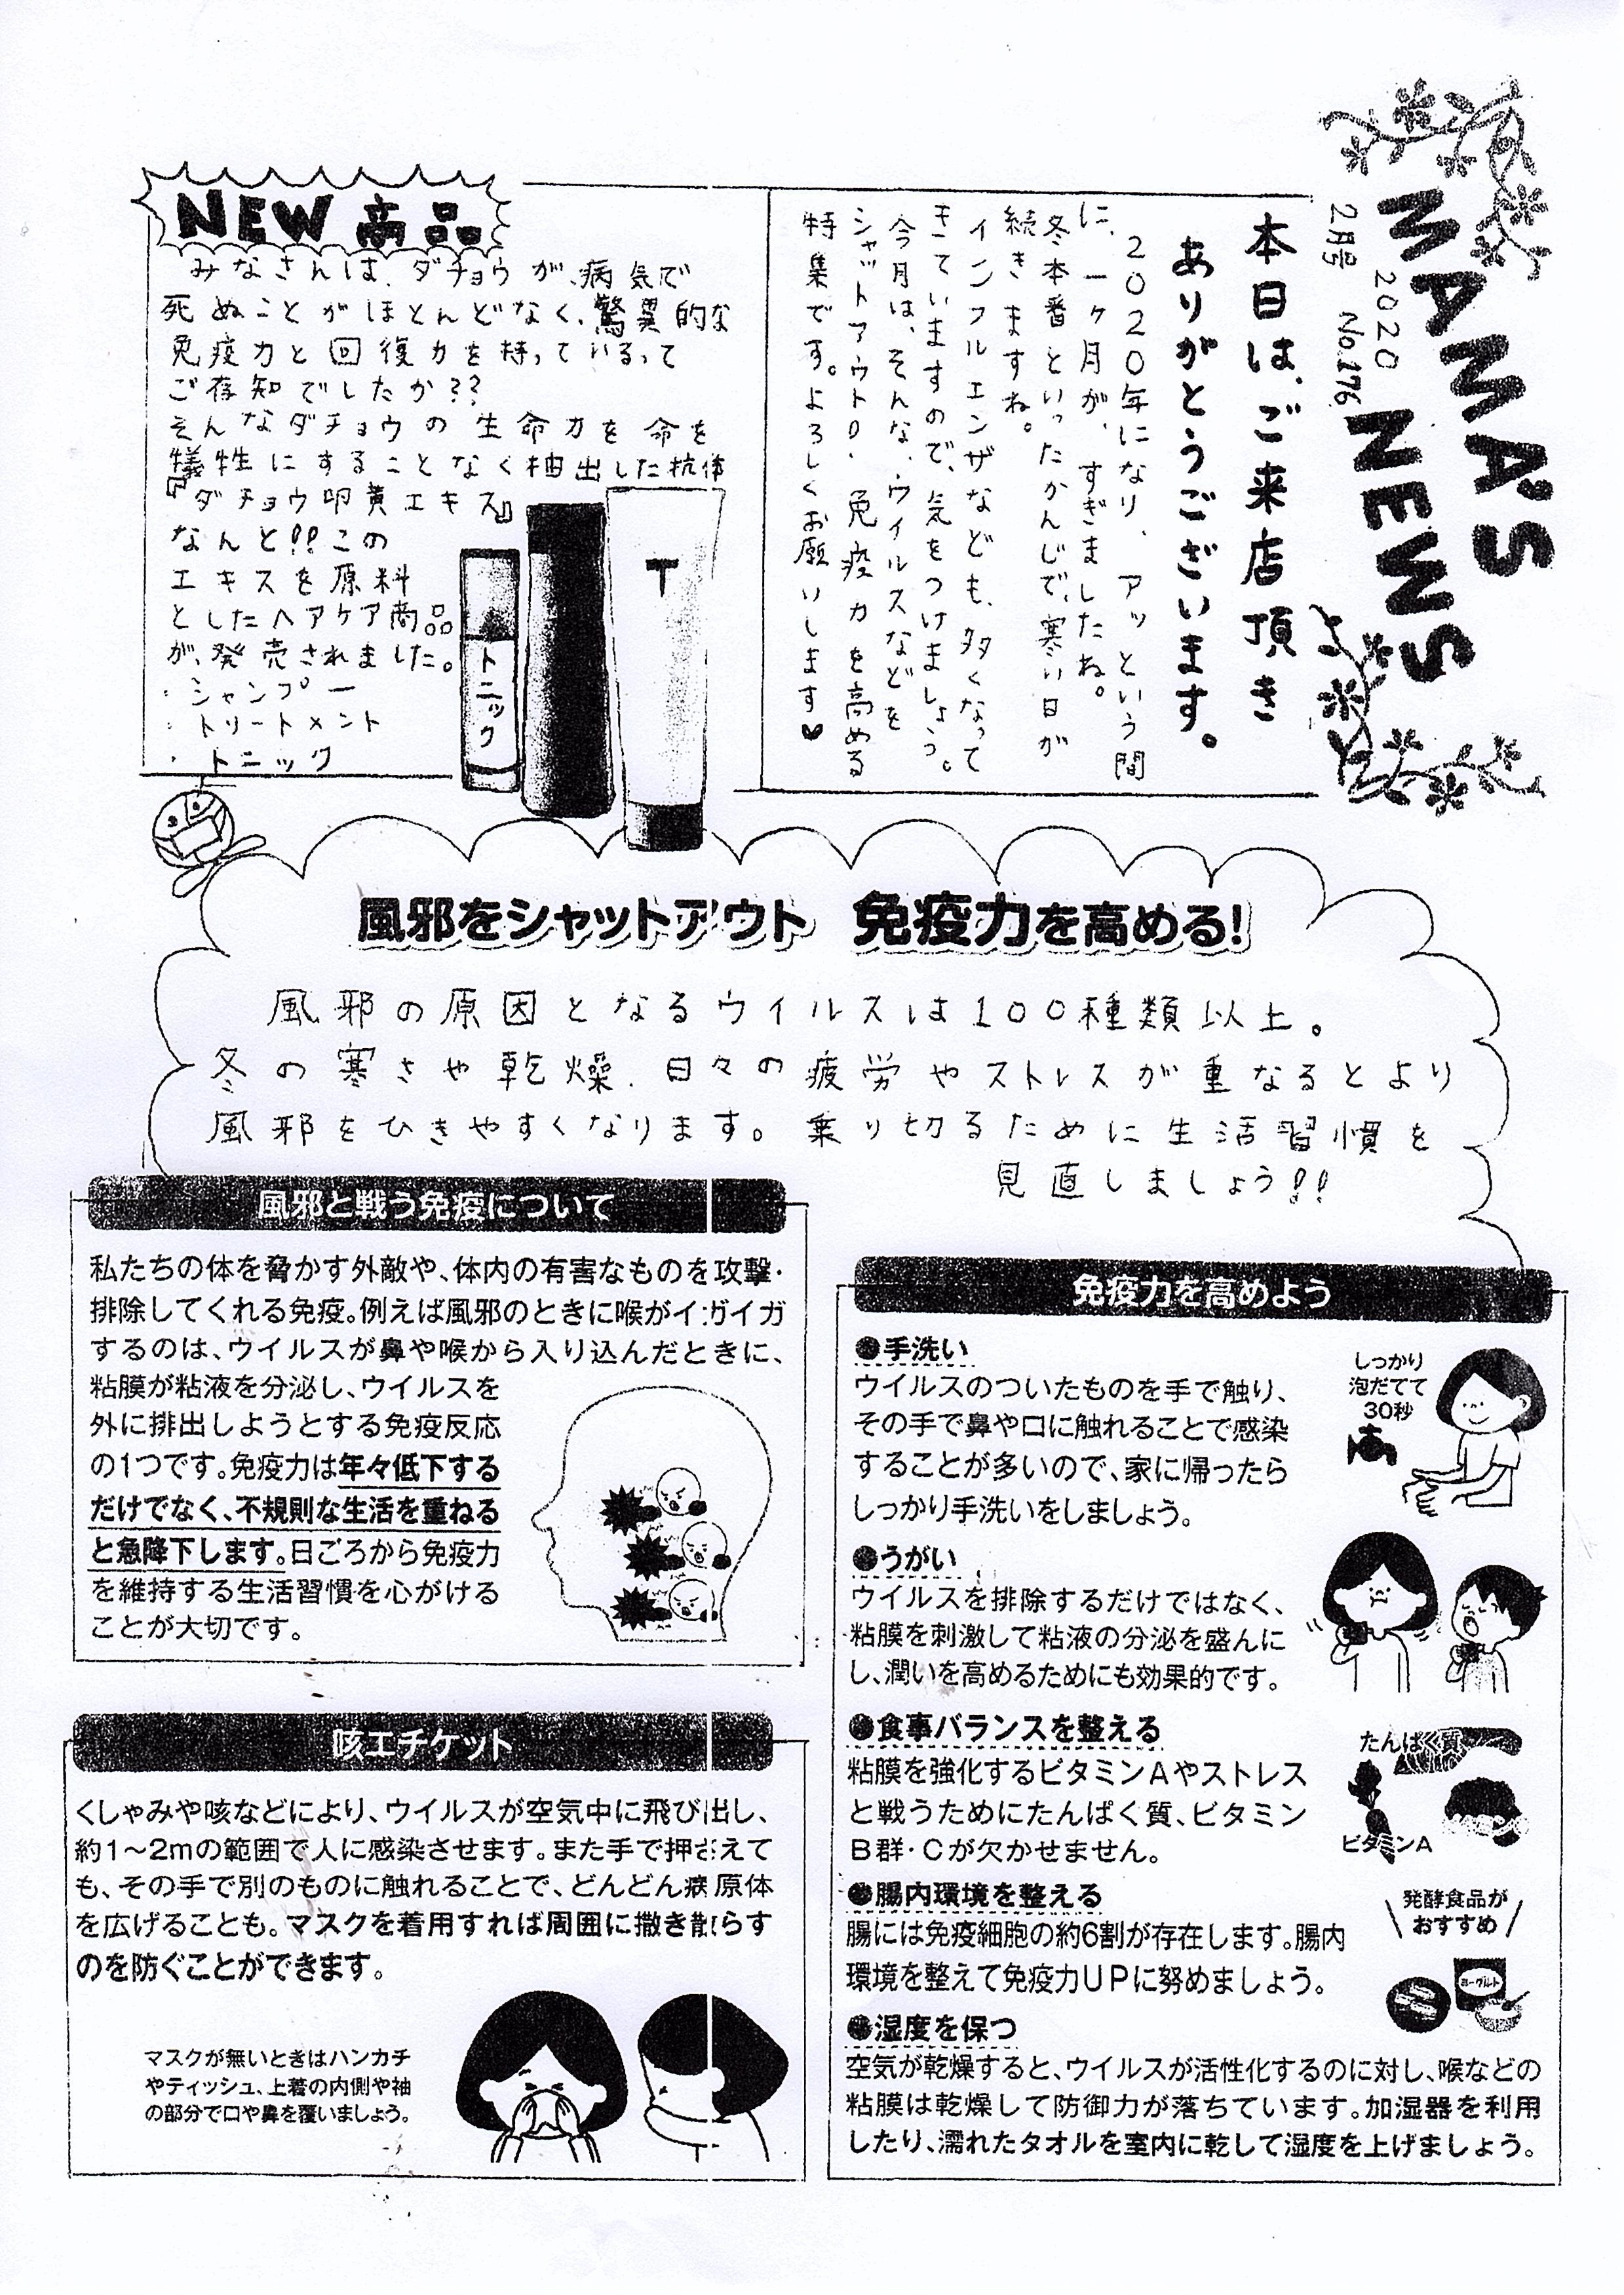 MAMA'S
NEWS
2020
2月号 No.176
本日は、ご来店頂き
ありがとうございます。
2020年になり、アッという間
に、一ヶ月が、すぎましたね。
冬本番といったかんじで、寒い日が
続きますね。
インフルエンザなども、多くなって
きていますので、気をつけましょう。
今月は、そんな、ウイルスなどを
シャットアウト!!、免疫力を高める
特集です。よろしくお願いします♥
NEW 商品
みなさんは、ダチョウが、病気で
死ぬことがほとんどなく、驚異的な
免疫力と回復力を持っているって
ご存知でしたか??
そんなダチョウの生命力を命を
犠牲にすることなく抽出した抗体
『ダチョウ卵黄エキス』
なんと!!この
エキスを原料
としたヘアケア商品
が、発売されました。
・シャンプー
・トリートメント
・トニック
トニック
T
風邪をシャットアウト 免疫力を高める!
風邪の原因となるウイルスは100種類以上。
冬の寒さや乾燥、日々の疲労やストレスが重なるとより
風邪をひきやすくなります。乗り切るために生活習慣を
見直しましょう!!
風邪と戦う免疫について
私たちの体を脅かす外敵や、体内の有害なものを攻撃・
排除してくれる免疫。例えば風邪のときに喉がイガイガ
するのは、ウイルスが鼻や喉から入り込んだときに、
粘膜が粘液を分泌し、ウイルスを
外に排出しようとする免疫反応
の1つです。免疫力は年々低下する
だけでなく、不規則な生活を重ねる
と急降下します。日ごろから免疫力
を維持する生活習慣を心がける
ことが大切です。
咳エチケット
くしゃみや咳などにより、ウイルスが空気中に飛び出し、
約1～2mの範囲で人に感染させます。また手で押さえて
も、その手で別のものに触れることで、どんどん病原体
を広げることも。マスクを着用すれば周囲に撒き散らす
のを防ぐことができます。
マスクが無いときはハンカチ
やティッシュ、上着の内側や袖
の部分で口や鼻を覆いましょう。
免疫力を高めよう
●手洗い
ウイルスのついたものを手で触り、
その手で鼻や口に触れることで感染
することが多いので、家に帰ったら
しっかり手洗いをしましょう。
しっかり
泡だてて
30秒
●うがい
ウイルスを排除するだけではなく、
粘膜を刺激して粘液の分泌を盛んに
し、潤いを高めるためにも効果的です。
●食事バランスを整える
粘膜を強化するビタミンAやストレス
と戦うためにたんぱく質、ビタミン
B群・Cが欠かせません。
たんぱく質
ビタミンA
●腸内環境を整える
腸には免疫細胞の約6割が存在します。腸内
環境を整えて免疫力UPに努めましょう。
発酵食品が
おすすめ
ヨーグルト
●湿度を保つ
空気が乾燥すると、ウイルスが活性化するのに対し、喉などの
粘膜は乾燥して防御力が落ちています。加湿器を利用
したり、濡れたタオルを室内に乾して湿度を上げましょう。